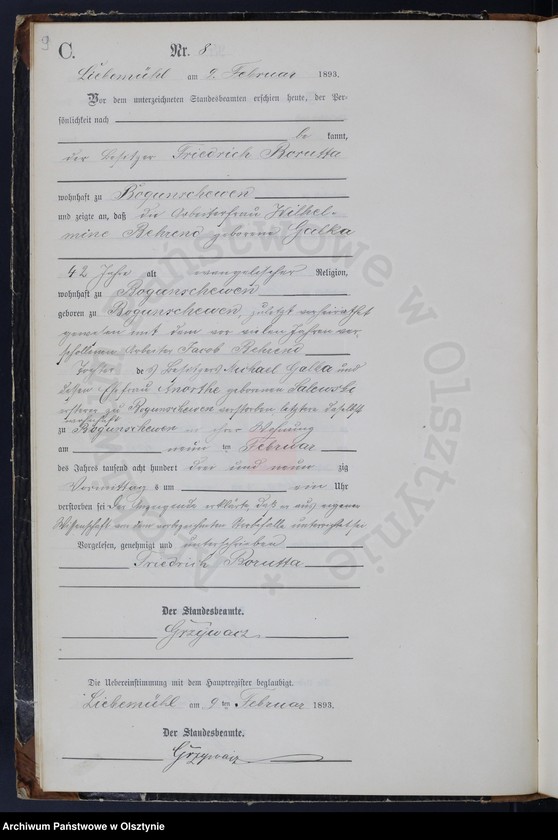 9
C.
Nr. 8
Liebemühl am 9. Februar 1893.
Vor dem unterzeichneten Standesbeamten erschien heute, der Per-
sönlichkeit nach
be kannt,
der Besitzer Friedrich Borutta
wohnhaft zu Bogunschewen
und zeigte an, daß die Arbeiterfrau Wilhel-
mine Behrend geborene Galka
42 Jahr alt evangelischer Religion,
wohnhaft zu Bogunschewen
geboren zu Bogunschewen, zuletzt verheirathet
gewesen mit dem vor vielen Jahren ver-
schollenen Arbeiter Jacob Behrend
Tochter des Besitzers Michael Galka und
dessen Ehefrau geborenen
ersterer zu Bogunschewen verstorben letztere
wohnhaft
zu Bogunschewen in ihrer Wohnung
am neun ten Februar
des Jahres tausend acht hundert drei und neun zig
Vormittag s um ein Uhr
verstorben sei Der Anzeigende erklärte, daß er aus eigener
Wissenschaft von dem vorbezeichneten Sterbefalle unterrichtet sei
Vorgelesen, genehmigt und unterschrieben
Friedrich Borutta
Der Standesbeamte.
Grzywacz
Die Uebereinstimmung mit dem Hauptregister beglaubigt.
Liebemühl am 9 ten Februar 1893.
Der Standesbeamte.
Grzywacz
Archiwum Państwowe w Olsztynie
Archiwum Państwowe w Olsztynie